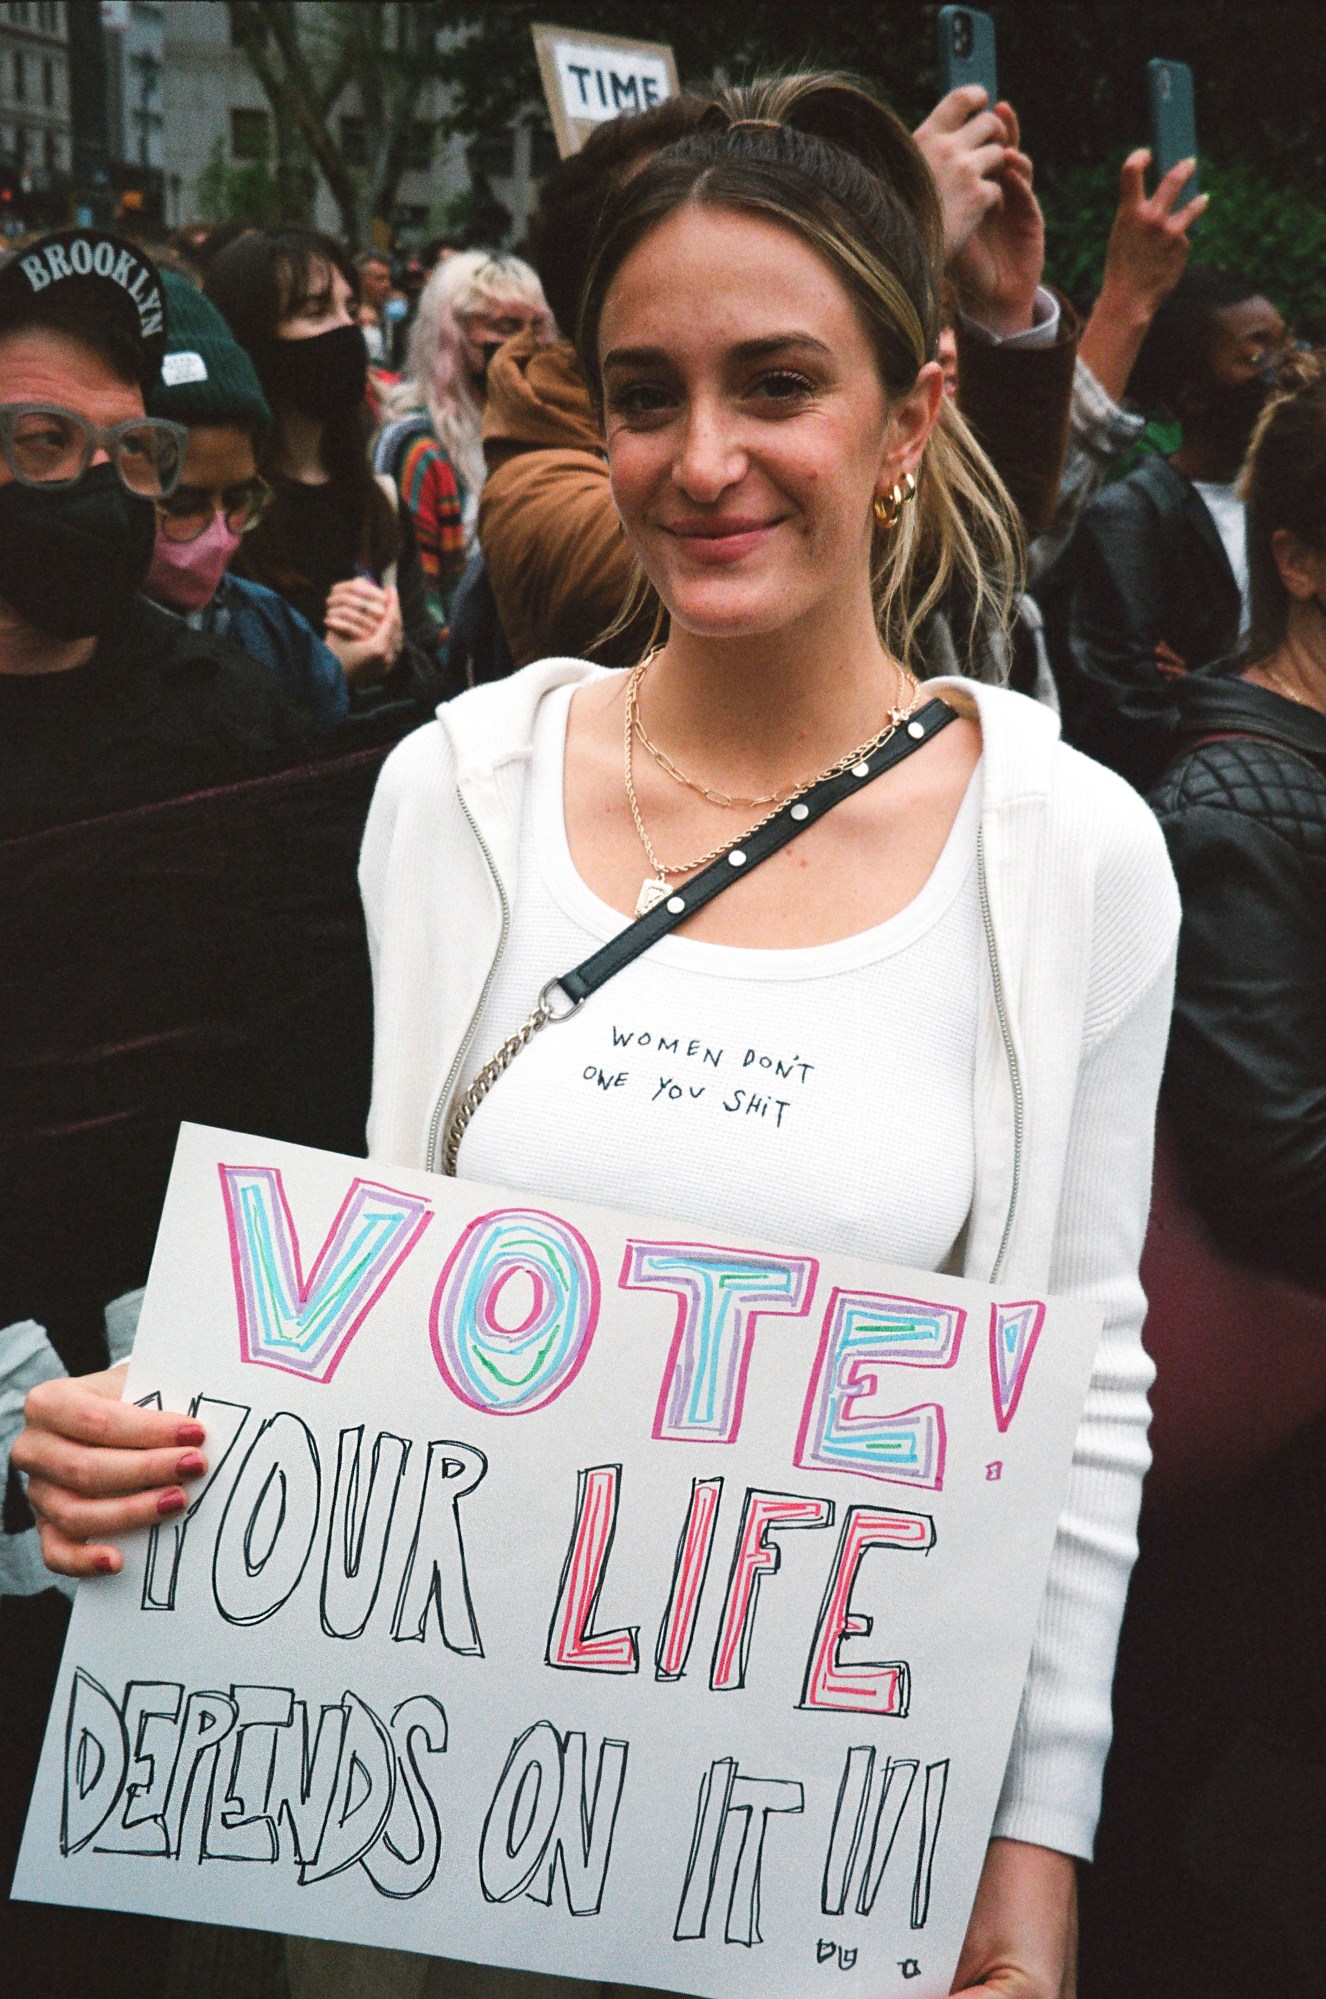 TIME
BROOKLYN
WOMEN DON'T
OWE YOU SHiT
VOTE!
YOUR LIFE
DEPENDS ON IT!!!